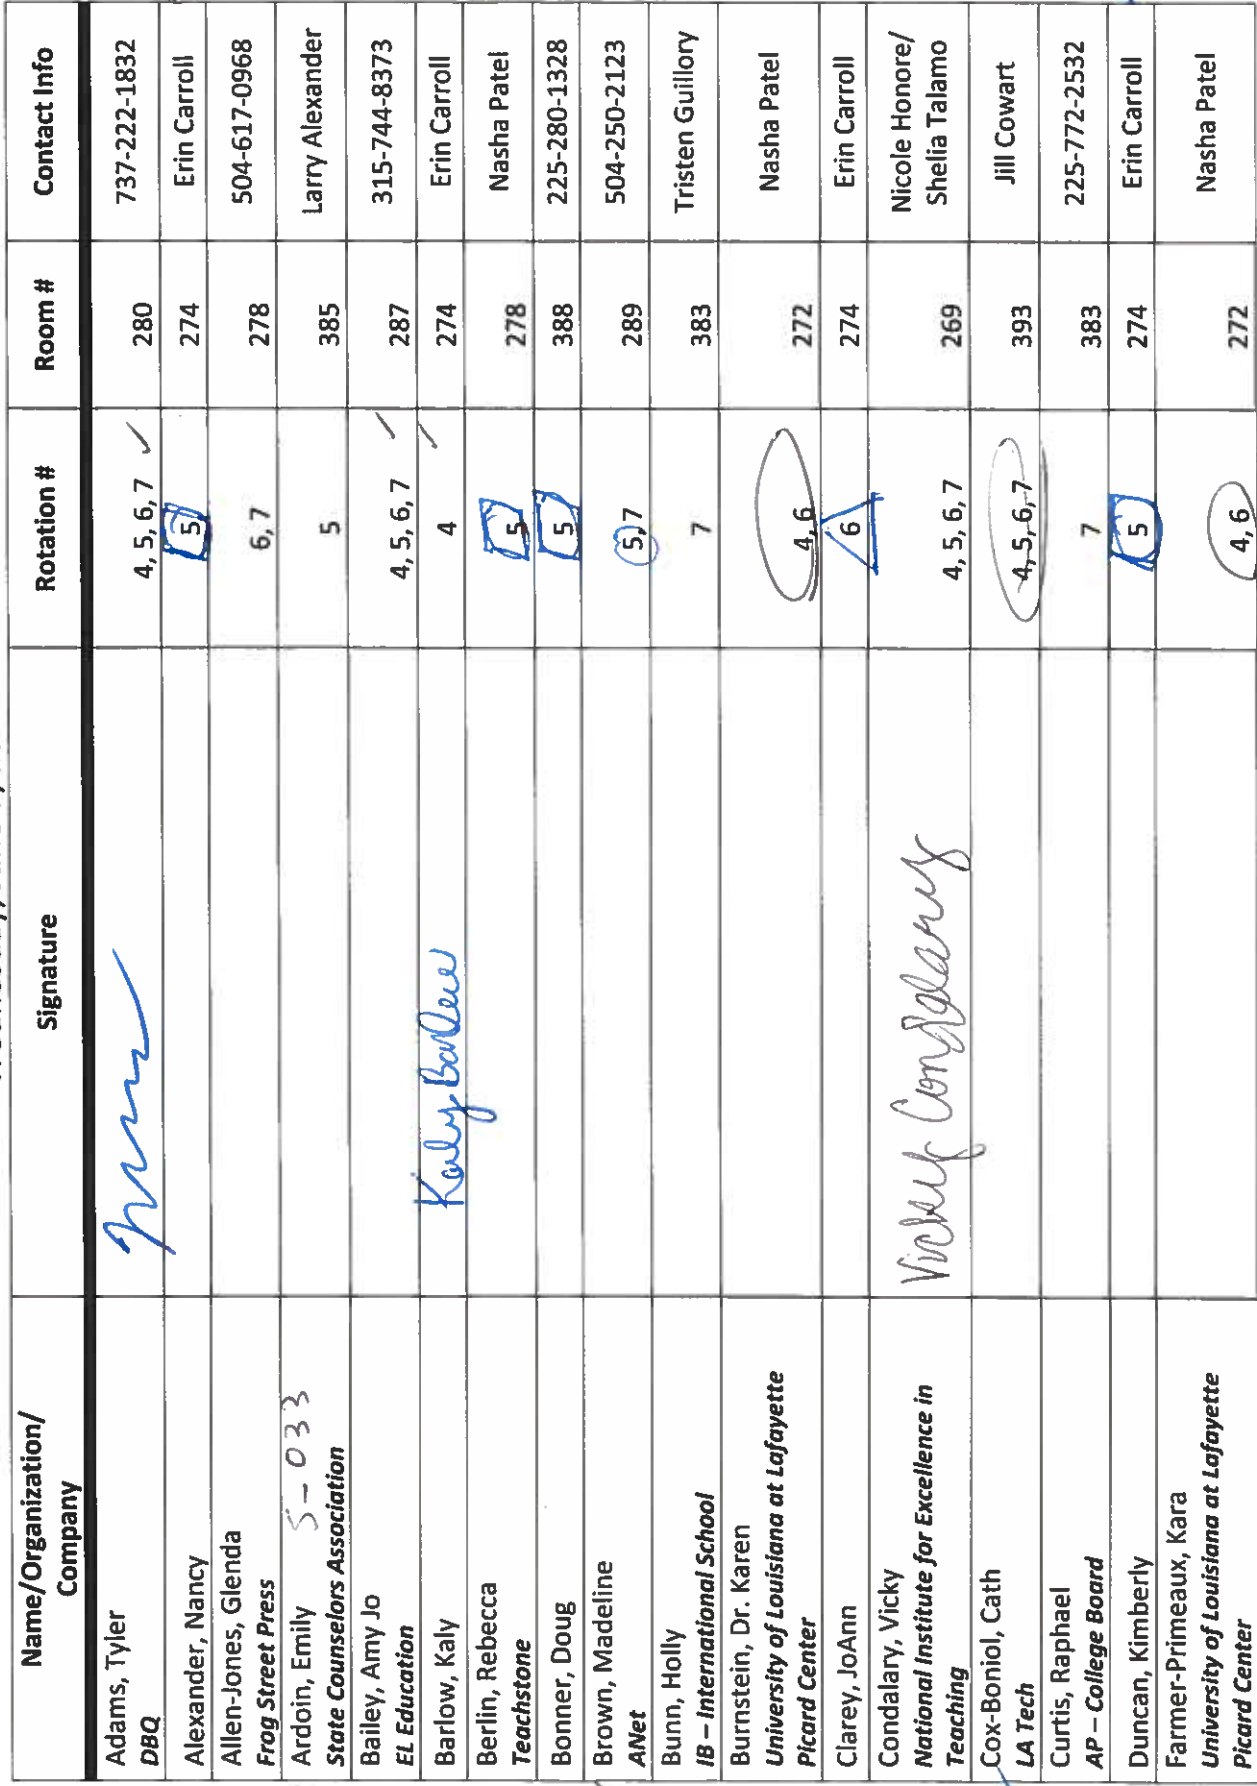 Name/Organization/
Company
Signature
Rotation #
Room #
Contact Info
Adams, Tyler
DBQ
4, 5, 6, 7 ✓
280
737-222-1832
Alexander, Nancy
5
274
Erin Carroll
Allen-Jones, Glenda
Frog Street Press
6, 7
278
504-617-0968
Ardoin, Emily 5-033
State Counselors Association
5
385
Larry Alexander
Bailey, Amy Jo
EL Education
4, 5, 6, 7
287
315-744-8373
Barlow, Kaly
Kaly Barlow
4
274
Erin Carroll
Berlin, Rebecca
Teachstone
5
278
Nasha Patel
Bonner, Doug
5
388
225-280-1328
Brown, Madeline
ANet
5, 7
289
504-250-2123
Bunn, Holly
IB – International School
7
383
Tristen Guillory
Burnstein, Dr. Karen
University of Louisiana at Lafayette
Picard Center
4, 6
272
Nasha Patel
Clarey, JoAnn
6
274
Erin Carroll
Condalary, Vicky
National Institute for Excellence in
Teaching
Vicky Condalary
4, 5, 6, 7
269
Nicole Honore/
Shelia Talamo
Cox-Boniol, Cath
LA Tech
4, 5, 6, 7
393
Jill Cowart
Curtis, Raphael
AP – College Board
7
383
225-772-2532
Duncan, Kimberly
5
274
Erin Carroll
Farmer-Primeaux, Kara
University of Louisiana at Lafayette
Picard Center
4, 6
272
Nasha Patel